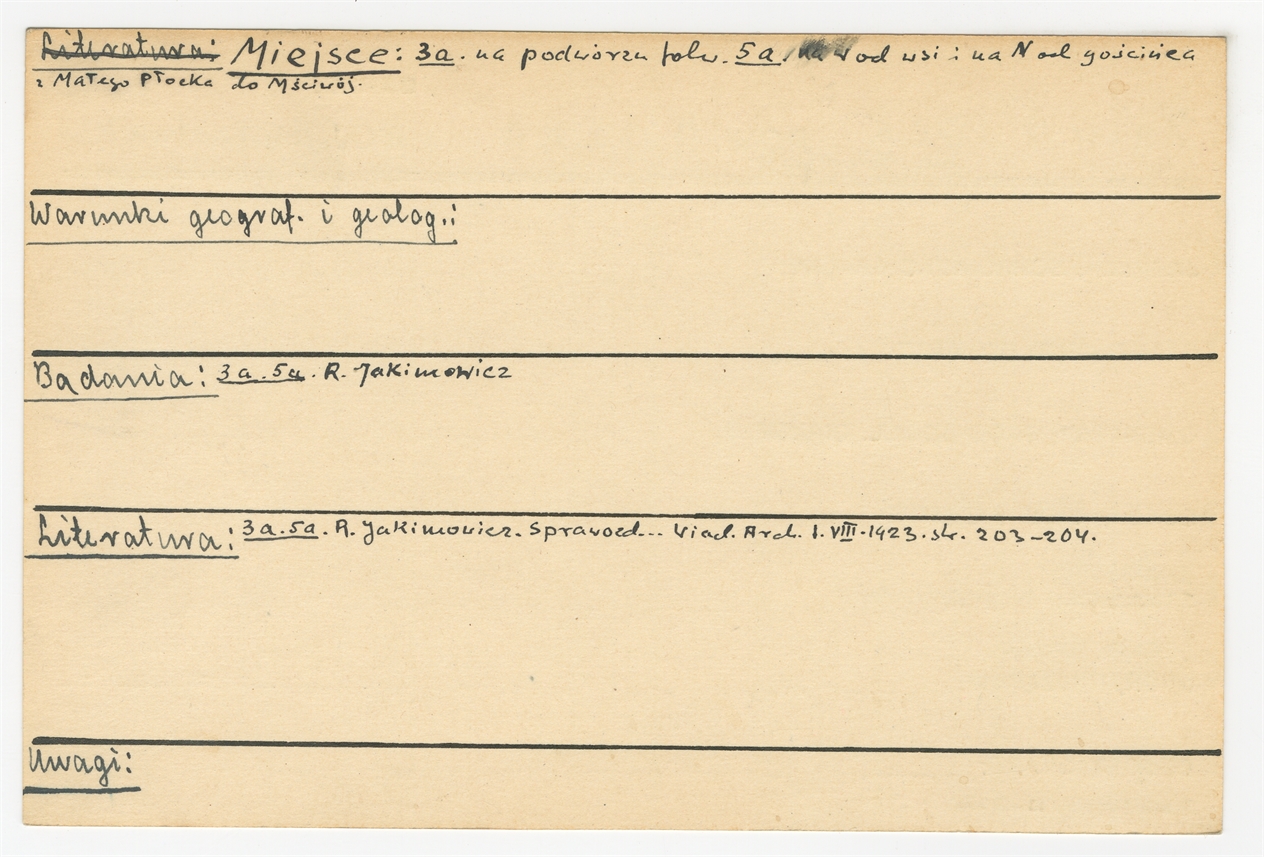 Literatura: Miejsce: 3a. na podwórzu folw. 5a. na W od wsi i na N od gościńca
z Małego Płocka do Mściwój.
Warunki geograf. i geolog.:
Badania: 3a. 5a. R. Jakimowicz
Literatura: 3a. 5a. R. Jakimowicz. Sprawozd... Wiad. Arch. t. VIII. 1923. str. 203-204.
Uwagi: